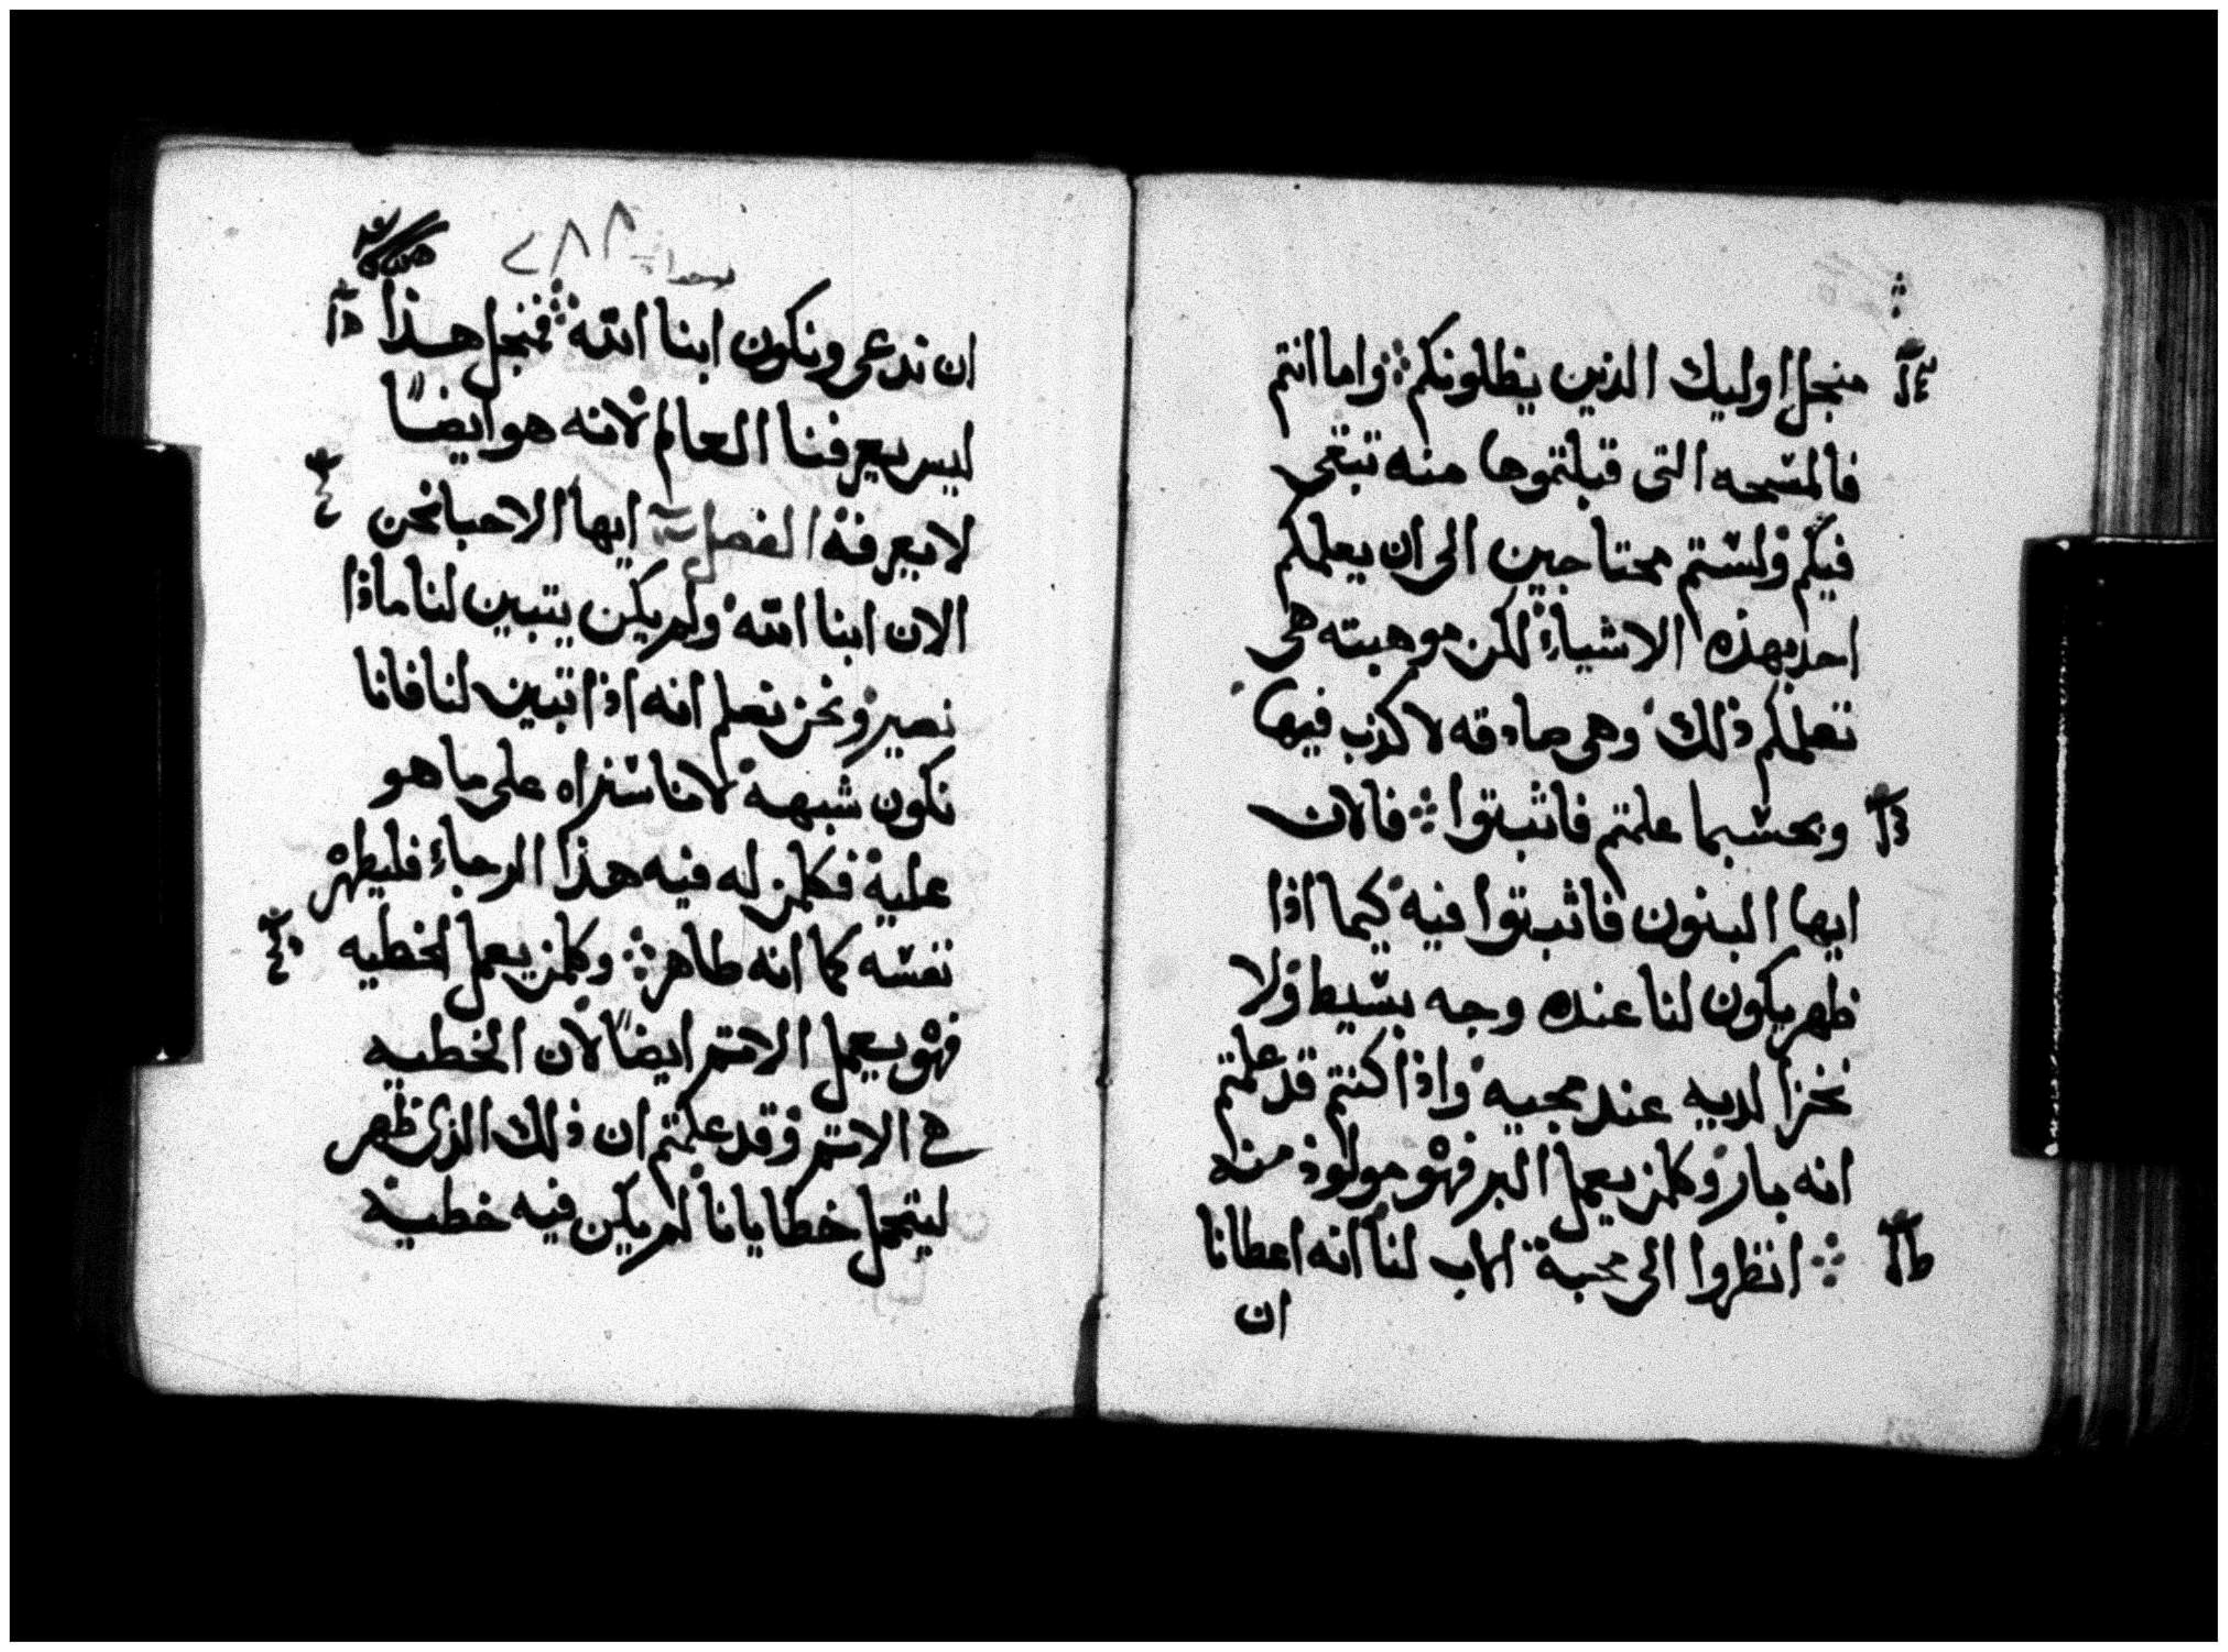 منجل اوليك الذين يظلونكم ⁘ واما انتم
فالمسحه التى قبلتموها منه تبقى
فيكم ولستم محتاجين الى ان يعلمكم
احد بهذه الاشياءِ لكن موهبته هى
تعلمكم ذلك وهى صادقه لا كذب فيها
وبحسبما علمتم فاثبتوا ⁘ فالان
ايها البنون فاثبتوا فيه كيما اذا
ظهر يكون لنا عنده وجه بسيط ولا
نخزا لديه عند مجيه واذا كنتم قد علمتم
انه بار وكلمن يعمل البر فهو مولود منه
⁘ انظروا الى محبة الاب لنا انه اعطانا
ان
٢٨٨
ان ندعى ونكون ابنا الله ⁘ فمنجل هذا
ليس يعرفنا العالم لانه هو ايضاً
لا يعرفه الفصل ايها الاحبا نحن
الان ابنا الله ولم يكن يتبين لنا ماذا
نصير ونحن نعلم انه اذا تبين لنا فانا
نكون شبهه لاننا سنراه على ما هو
عليه فكلمن له فيه هذا الرجاءِ فليطهر
نفسه كما انه طاهر ⁘ وكلمن يعمل الخطيه
فهو يعمل الاثم ايضاً لان الخطيه
هى الاثم وقد علمتم ان ذلك الذى ظهر
ليتحمل خطايانا لم يكن فيه خطيه